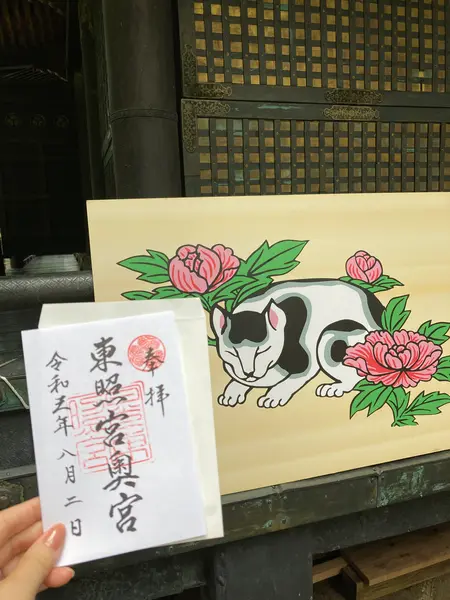 奉拝
東照宮奥宮
令和五年八月二日